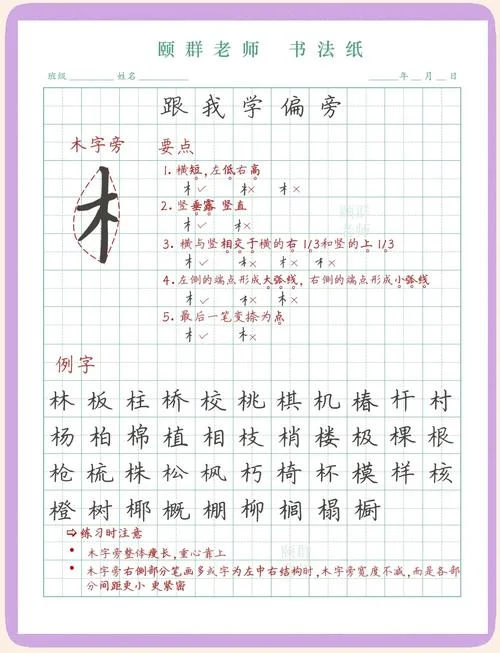 颐群老师 书法纸
班级 姓名 年 月 日
跟我学偏旁
木字旁 要点
木
1. 横短,左低右高
✓ × ×
2. 竖垂露 竖直
✓ ×
3. 横与竖相交于横的右 1/3和竖的上 1/3
✓ × × ×
4. 左侧的端点形成大弧线, 右侧的端点形成小弧线
✓ × ×
5. 最后一笔变捺为点
✓ ×
颐群老师
例字
林板柱桥校桃棋机椿杆村
杨柏棉植相枝梢楼极棵根
枪梳株松枫朽椅杯模样核
橙树椰概棚柳榈榻橱
⇨ 练习时注意
• 木字旁整体瘦长,重心靠上
颐群
• 木字旁右侧部分笔画多或字为左中右结构时,木字旁宽度不减,而是各部
分间距更小 更紧密